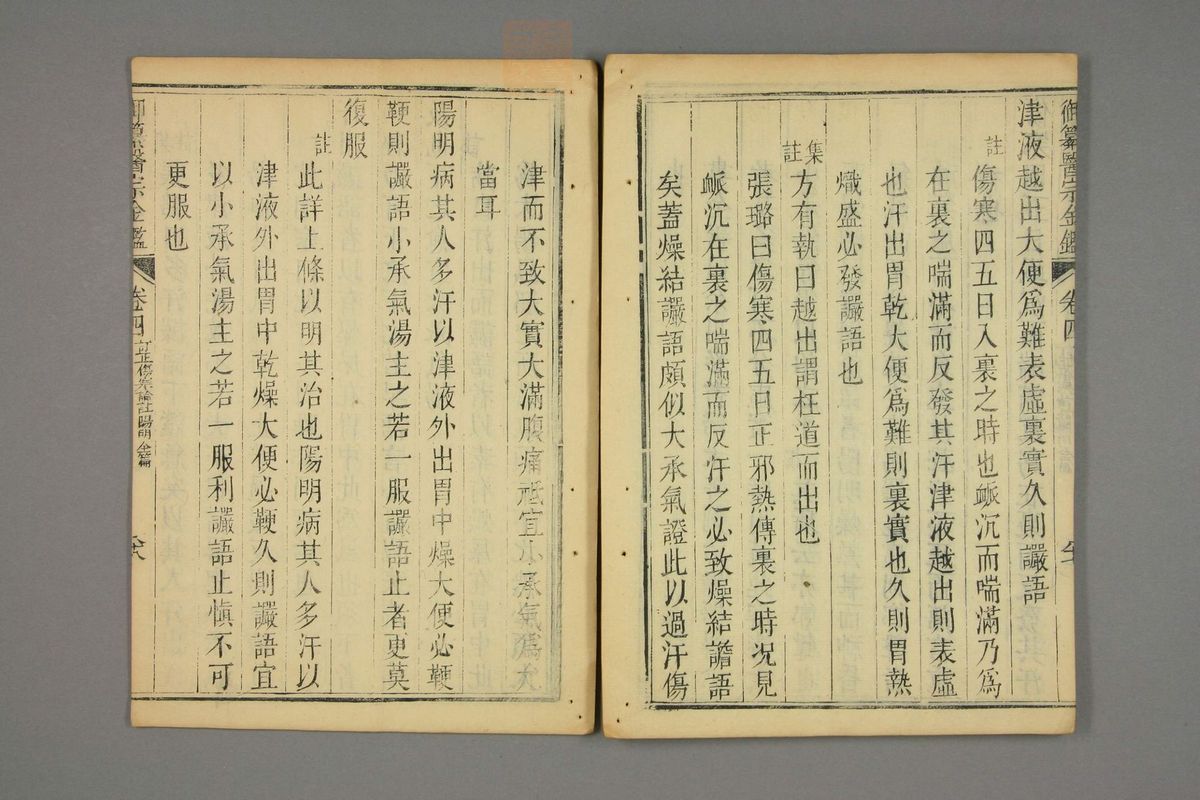 御纂醫宗金鑑 卷四
津液越出大便爲難表虛裏實久則讝語
註 傷寒四五日入裏之時也脈沉而喘滿乃爲
在裏之喘滿而反發其汗津液越出則表虛
也汗出胃乾大便爲難則裏實也久則胃熱
熾盛必發讝語也
集註 方有執曰越出謂枉道而出也
張璐曰傷寒四五日正邪熱傳裏之時況見
脈沉在裏之喘滿而反汗之必致燥結譫語
矣蓋燥結讝語頗似大承氣證此以過汗傷
津而不致大實大滿腹痛祗宜小承氣爲允
當耳
陽明病其人多汗以津液外出胃中燥大便必鞕
鞕則讝語小承氣湯主之若一服讝語止者更莫
復服
註 此詳上條以明其治也陽明病其人多汗以
津液外出胃中乾燥大便必鞕久則讝語宜
以小承氣湯主之若一服利讝語止愼不可
更服也
御纂醫宗金鑑 卷四 訂正傷寒論註陽明全篇